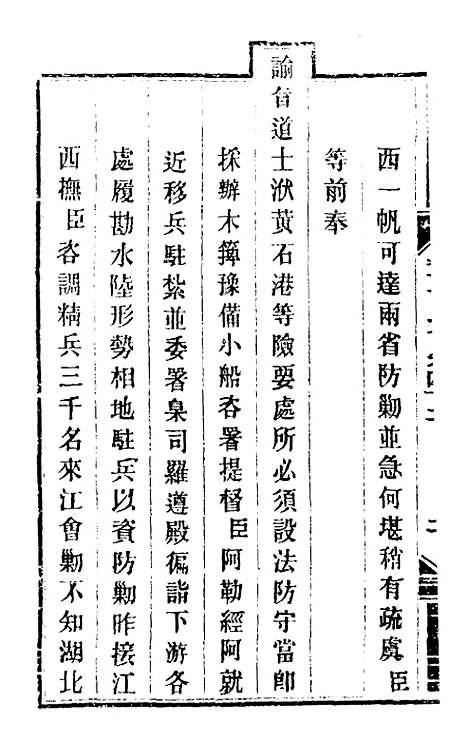 西一帆可達兩省防勦並急何堪稍有疏虞臣
等前奉
諭旨道士洑黃石港等險要處所必須設法防守當即
採辦木簰豫備小船咨署提督臣阿勒經阿就
近移兵駐紮並委署臬司羅遵殿徧詣下游各
處履勘水陸形勢相地駐兵以資防勦昨接江
西撫臣咨調精兵三千名來江會勦不知湖北